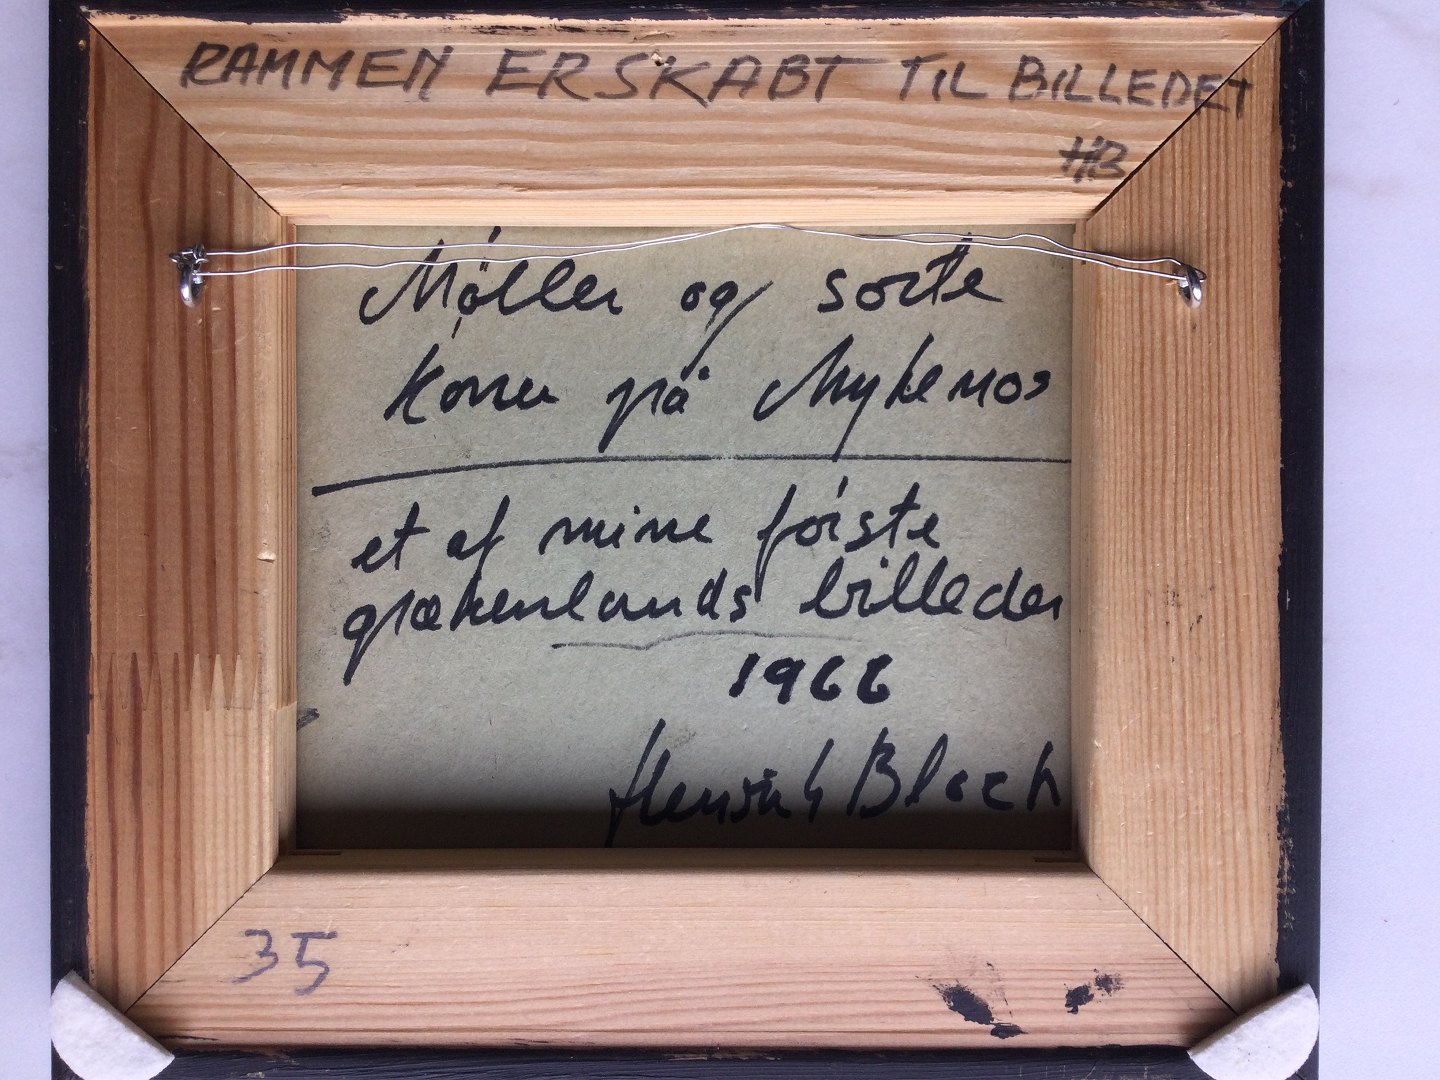 RAMMEN ER SKABT TIL BILLEDET
HB
Møller og sorte
koner på Mykenos
et af mine første
grækenlands billeder
1966
Henrik Bloch
35